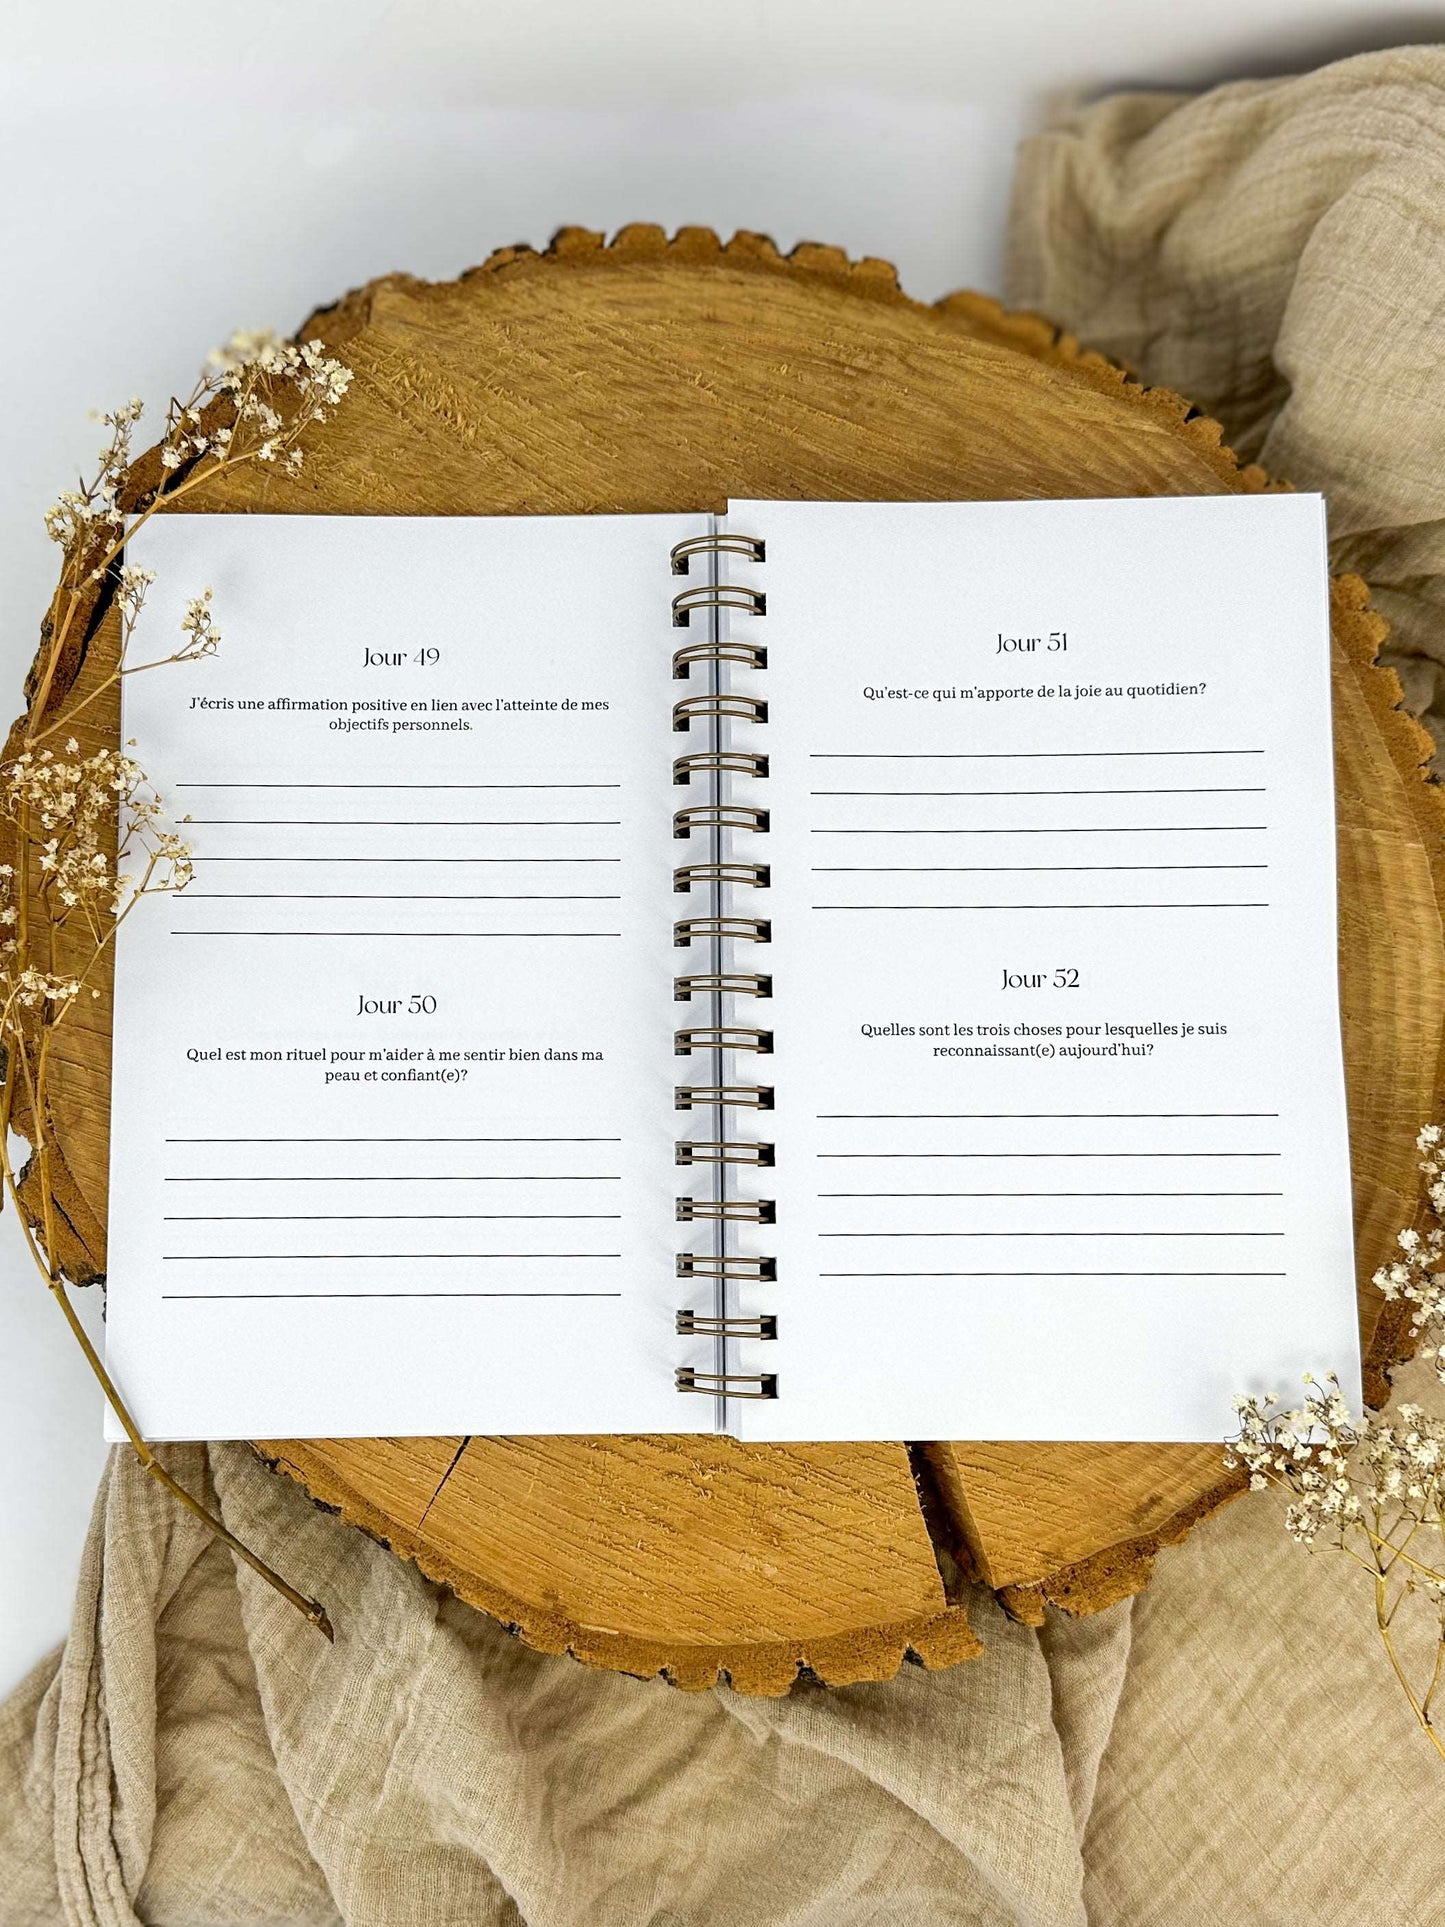 Jour 49
J'écris une affirmation positive en lien avec l'atteinte de mes
objectifs personnels.
Jour 50
Quel est mon rituel pour m'aider à me sentir bien dans ma
peau et confiant(e)?
Jour 51
Qu'est-ce qui m'apporte de la joie au quotidien?
Jour 52
Quelles sont les trois choses pour lesquelles je suis
reconnaissant(e) aujourd'hui?